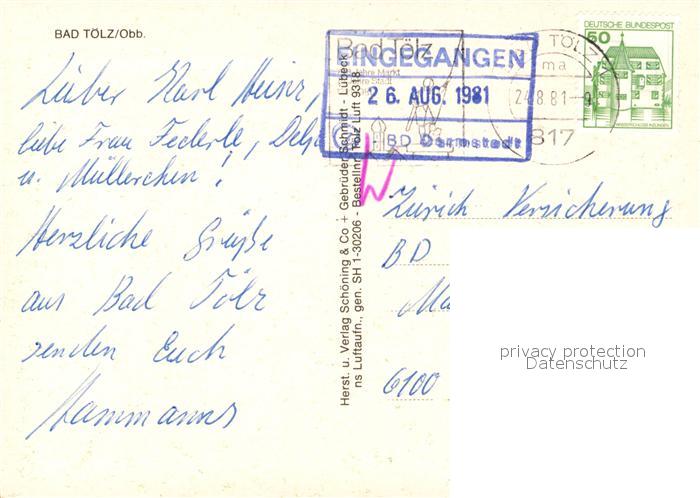 BAD TÖLZ/Obb.
Lieber Karl Heinz,
liebe Frau Federle,
u. Müllerchen!
Herzliche Grüße
aus Bad Tölz
senden Euch
Hammanns
Herst. u. Verlag Schöning & Co + Gebrüder Schmidt - Lübeck
ns Luftaufn., gen. SH 1-30206 - Bestellnr. Tölz Luft 9318
Bad Tölz
EINGEGANGEN
26. AUG. 1981
BD Darmstadt
TÖLZ
ma
24.8.81-9
817
DEUTSCHE BUNDESPOST
50
WASSERSCHLOSS INZLINGEN
Zürich Versicherung
BD
6100
privacy protection
Datenschutz